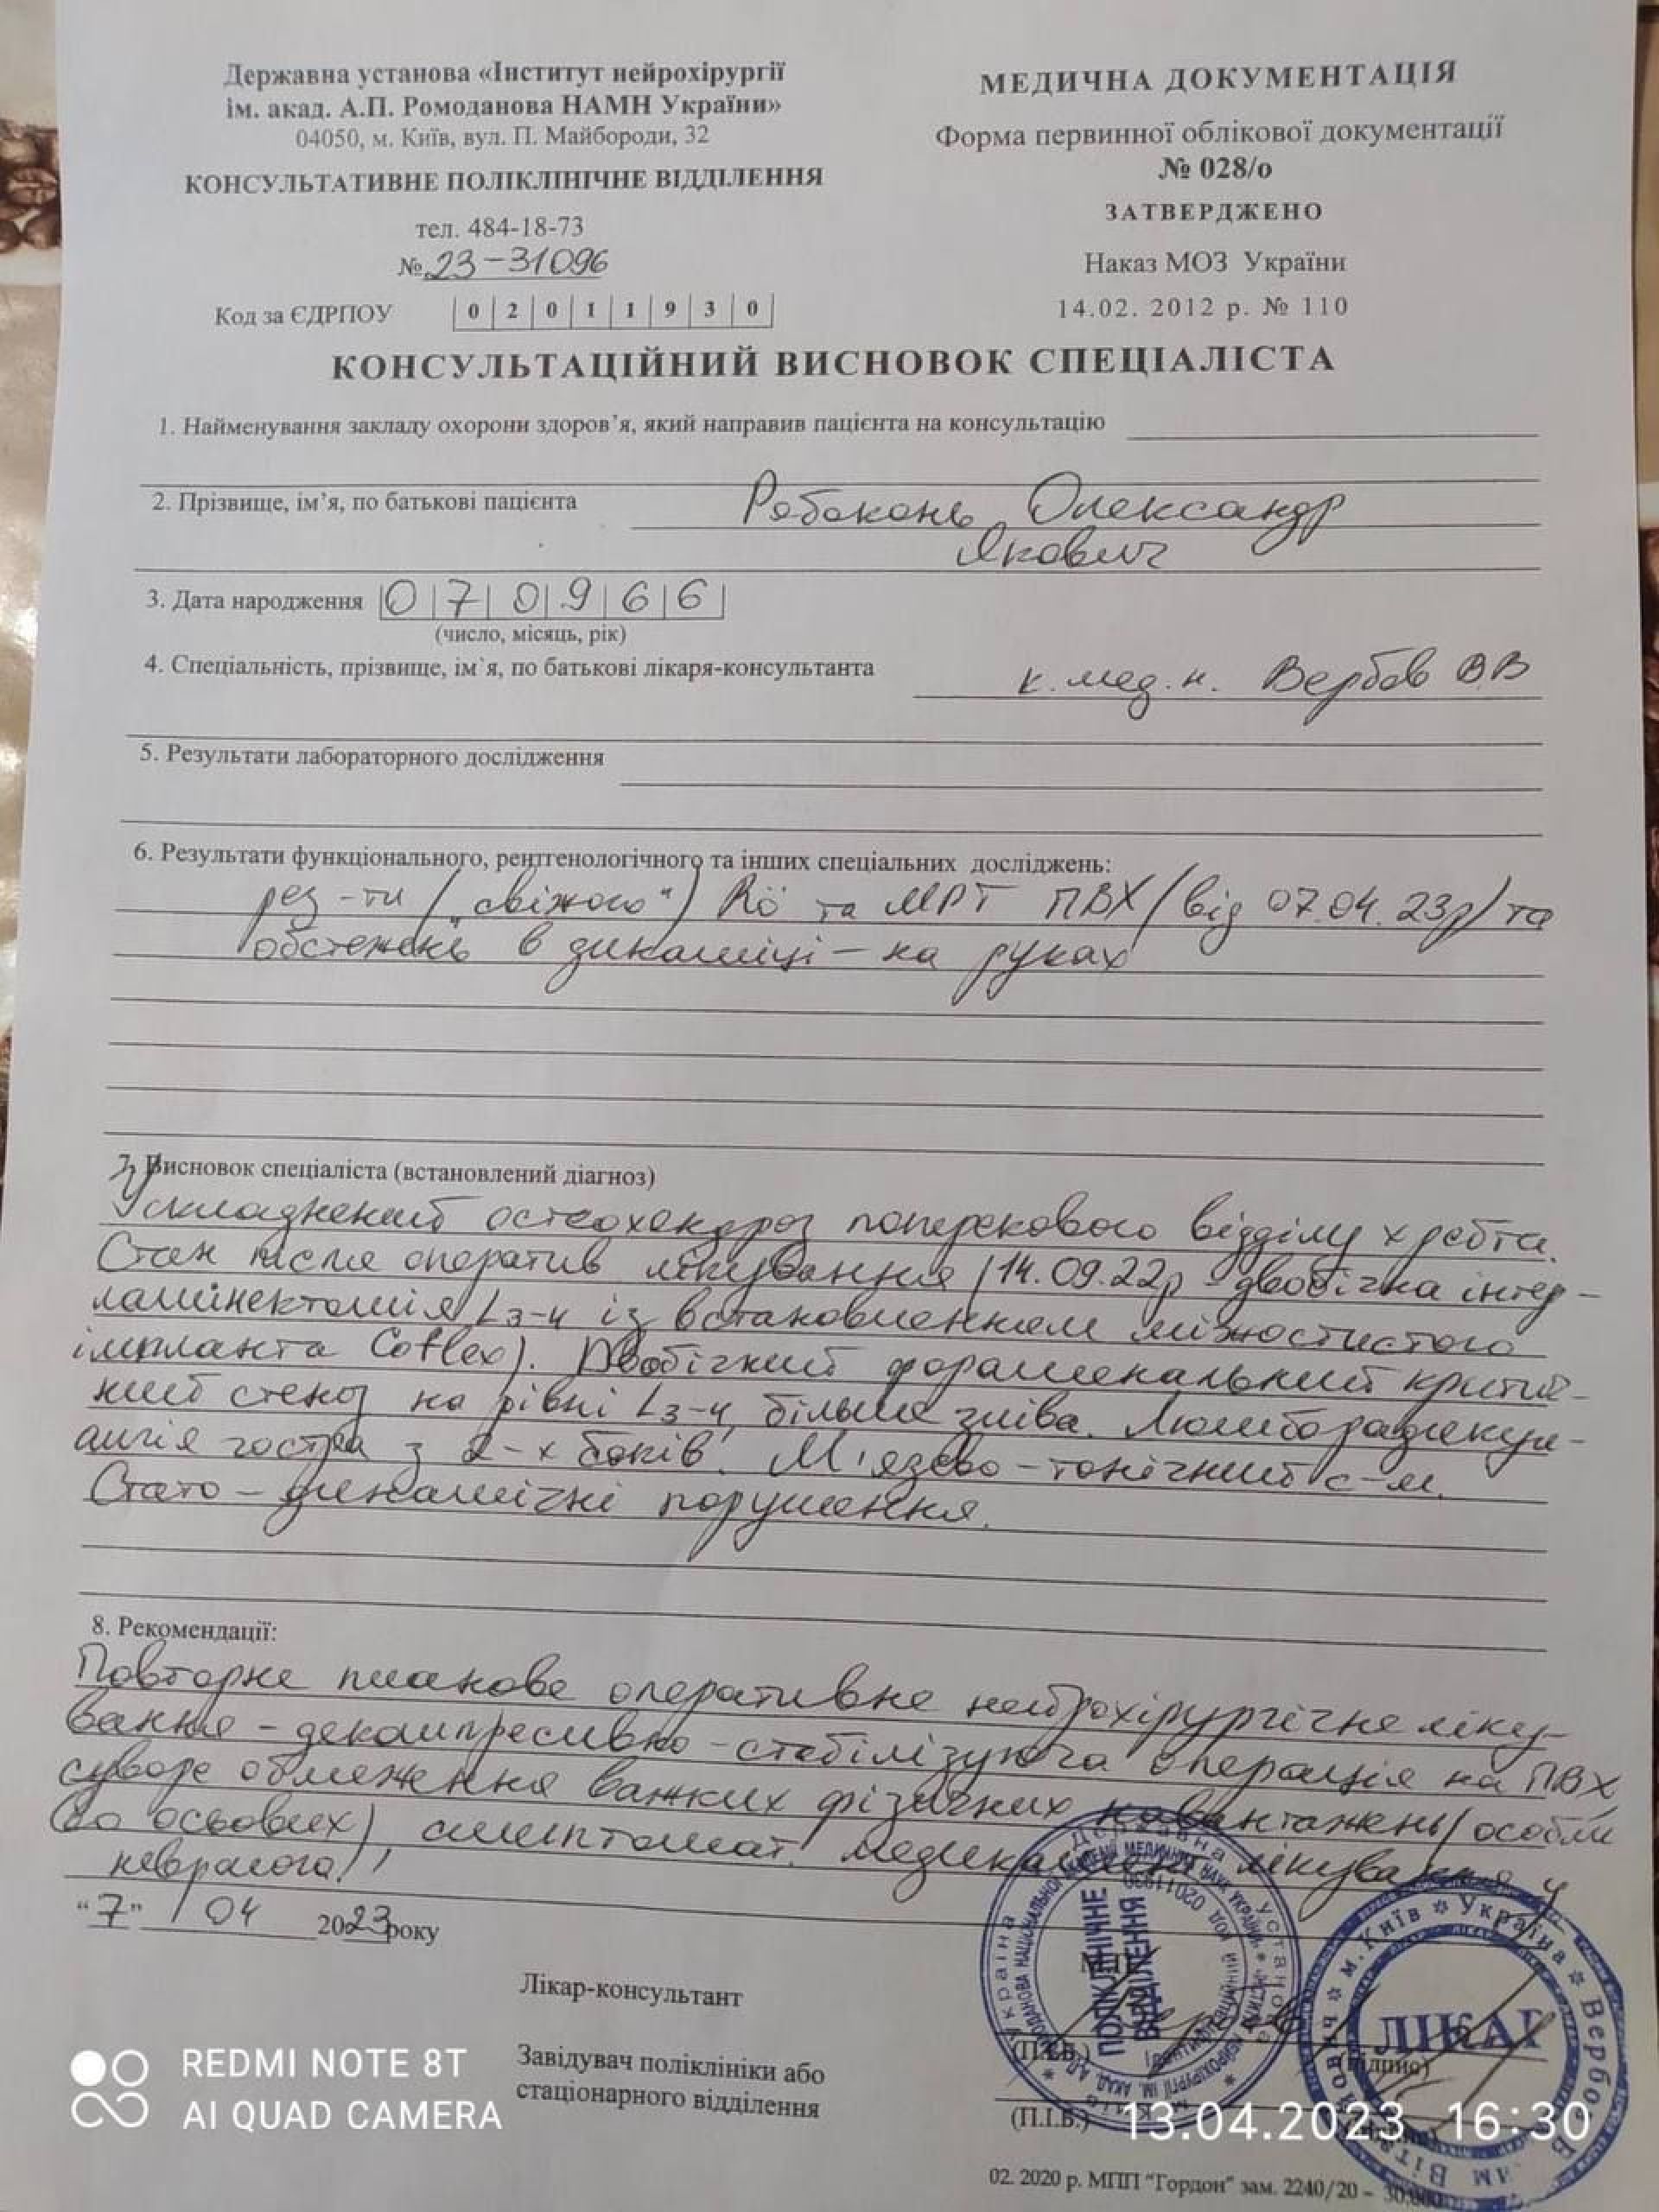 Державна установа «Інститут нейрохірургії
ім. акад. А.П. Ромоданова НАМН України»
04050, м. Київ, вул. П. Майбороди, 32
КОНСУЛЬТАТИВНЕ ПОЛІКЛІНІЧНЕ ВІДДІЛЕННЯ
тел. 484-18-73
№ 23-31096
Код за ЄДРПОУ 0 2 0 1 1 9 3 0
МЕДИЧНА ДОКУМЕНТАЦІЯ
Форма первинної облікової документації
№ 028/о
ЗАТВЕРДЖЕНО
Наказ МОЗ України
14.02. 2012 р. № 110
КОНСУЛЬТАЦІЙНИЙ ВИСНОВОК СПЕЦІАЛІСТА
1. Найменування закладу охорони здоров’я, який направив пацієнта на консультацію
2. Прізвище, ім’я, по батькові пацієнта Рябоконь Олександр
Якович
3. Дата народження 0 7 0 9 6 6
(число, місяць, рік)
4. Спеціальність, прізвище, ім`я, по батькові лікаря-консультанта к.мед.н. Вербов ВВ
5. Результати лабораторного дослідження
6. Результати функціонального, рентгенологічного та інших спеціальних досліджень:
рез-ти ("свіжого") та МРТ ПВХ (від 07.04.23р) та
обстежень в динаміці - на руках
7. Висновок спеціаліста (встановлений діагноз)
Ускладнений остеохондроз поперекового відділу хребта.
Стан після оператив лікування (14.09.22р - двобічна інтер-
ламінектомія L3-4 із встановленням міжостистого
імпланта Coflex). Двобічний фораменальний критич-
ний стеноз на рівні L3-4, більше зліва. Люмборадикул-
алгія гостра з 2-х боків. М'язево-тонічний с-м.
Стато-динамічні порушення.
8. Рекомендації:
Повторне планове оперативне нейрохірургічне ліку-
вання - декомпресивно-стабілізуюча операція на ПВХ,
суворе обмеження важких фізичних навантажень (особли
во осьових), симптомат. медикаментозне лікування у
невролога!
"7" / 04 2023 року
Лікар-консультант
Завідувач поліклініки або
стаціонарного відділення
(П.І.Б.)
(підпис)
(П.І.Б.)
ПОЛІКЛІНІЧНЕ
ВІДДІЛЕННЯ
02011930
ЛІКАР
м. Київ * Україна * Вербов
REDMI NOTE 8T
AI QUAD CAMERA
13.04.2023 16:30
02. 2020 р. МПП "Гордон" зам. 2240/20 -